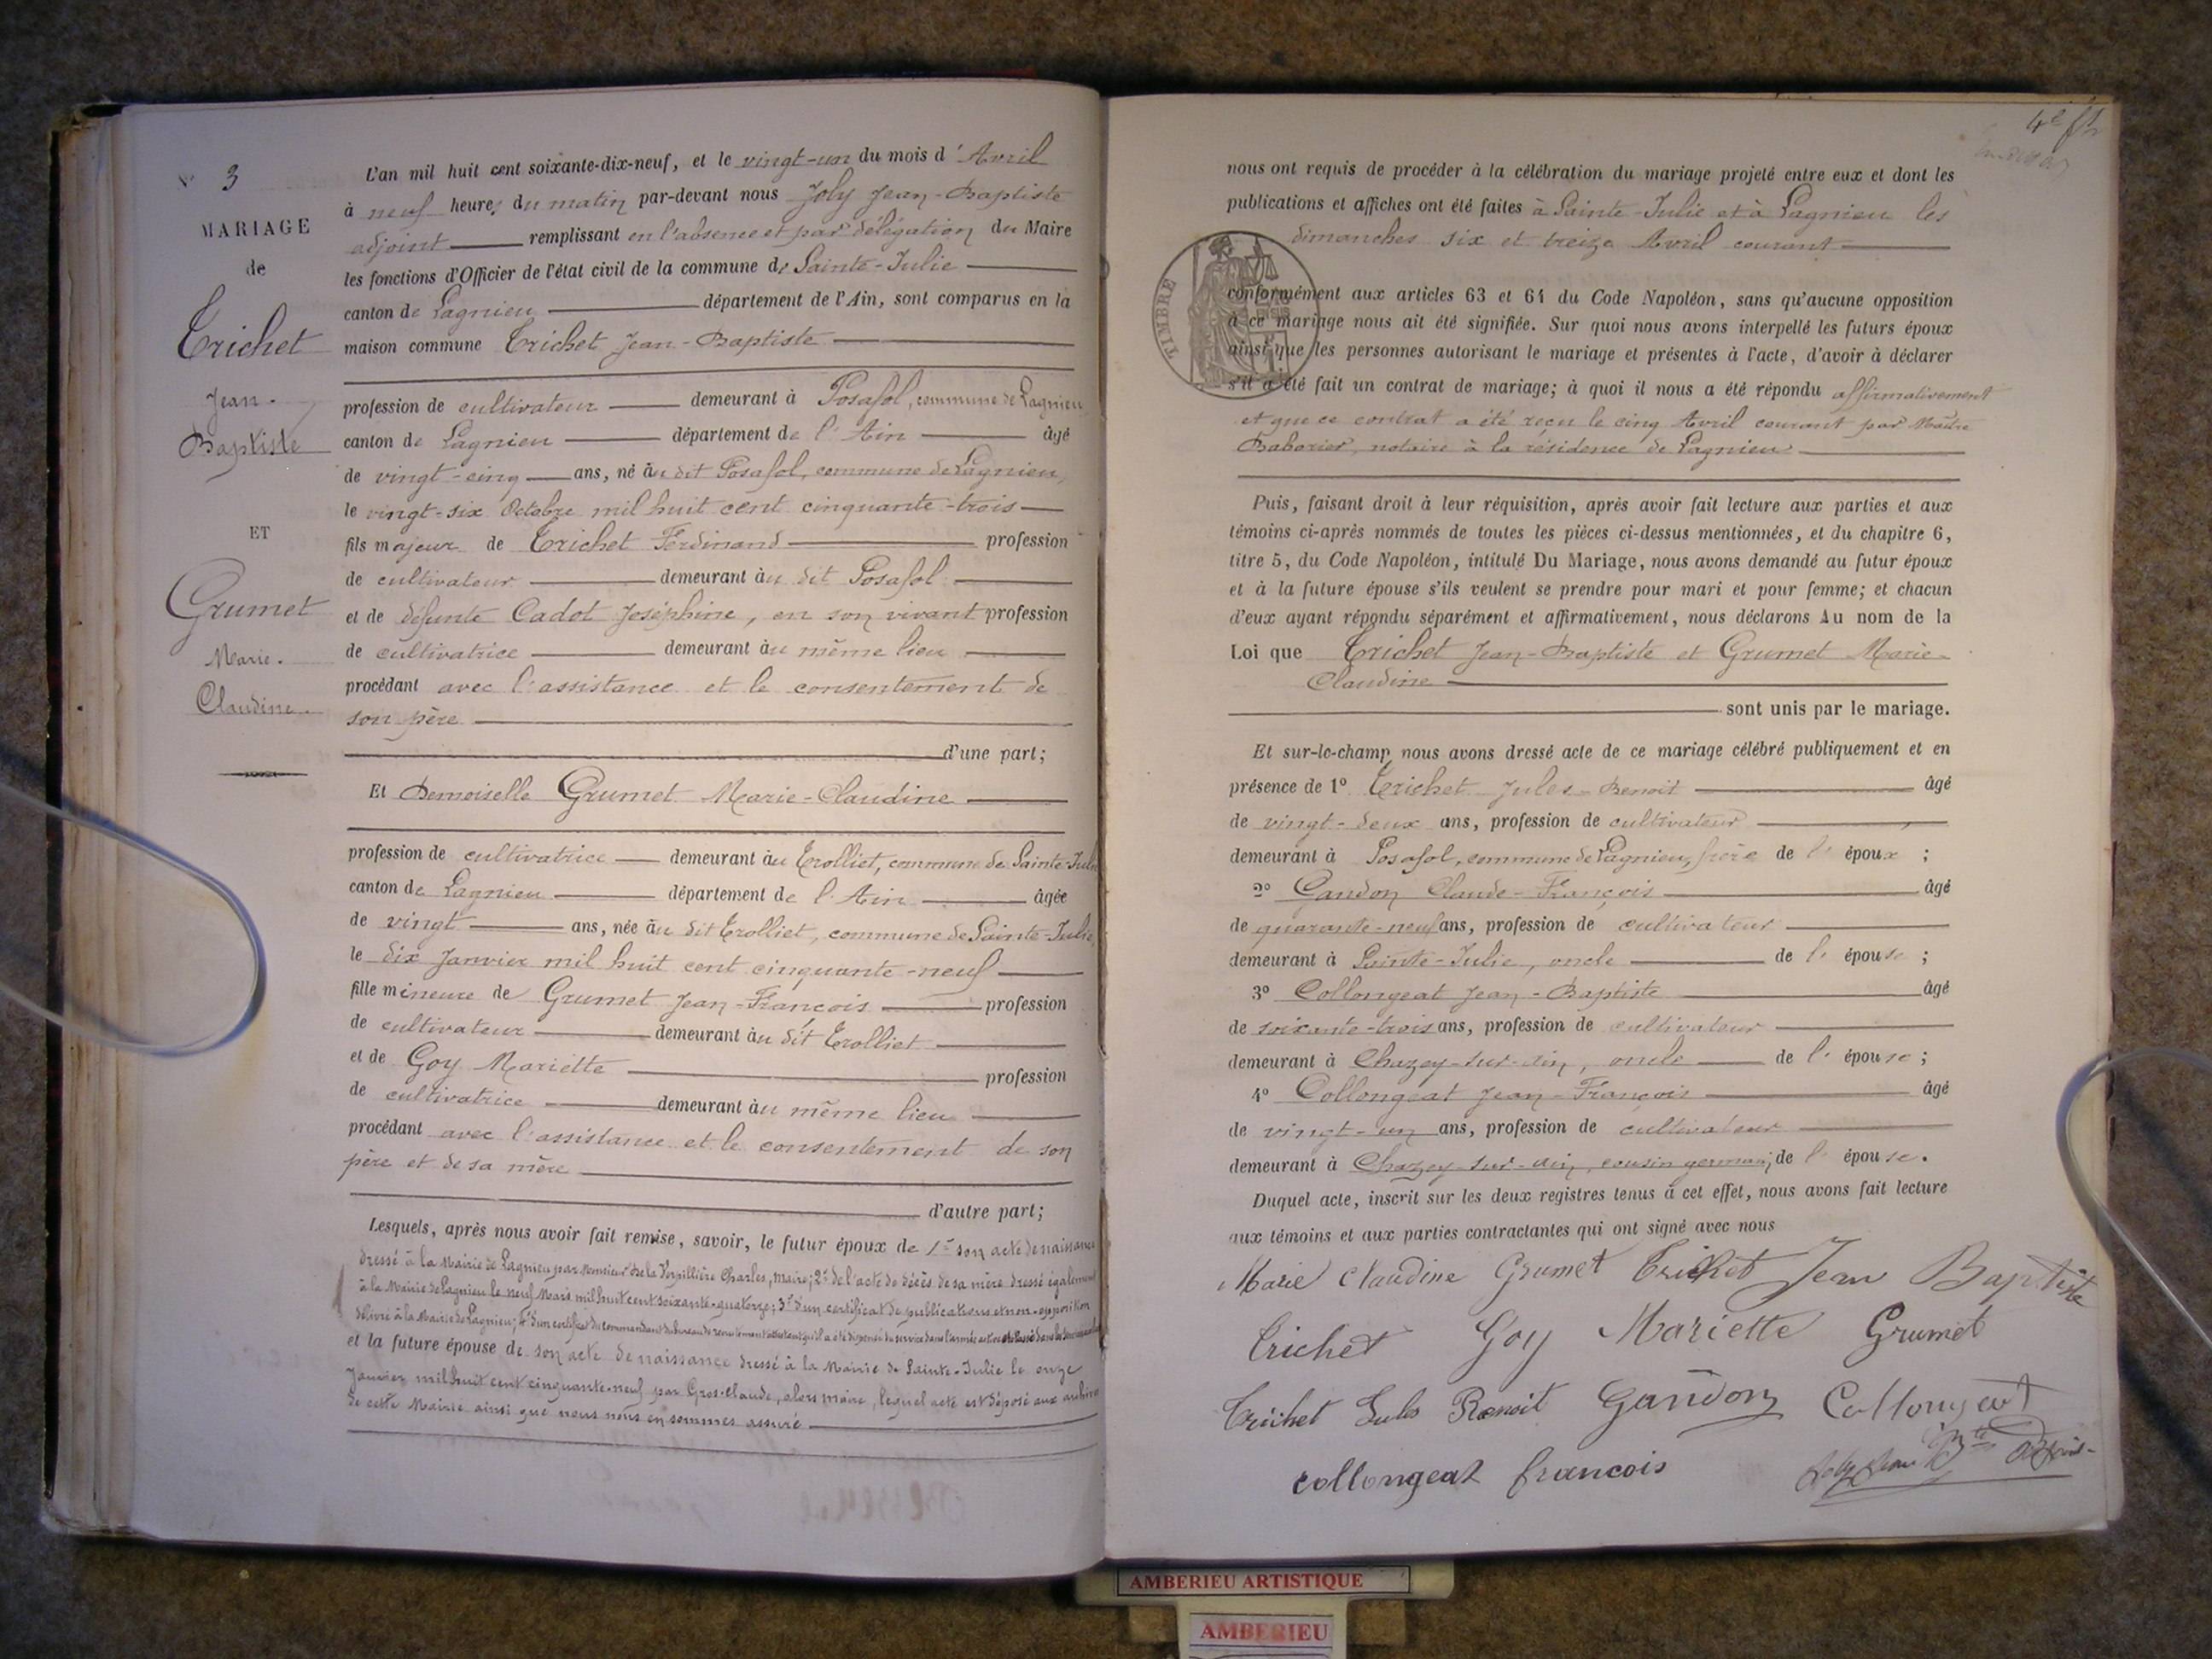 N° 3
MARIAGE
de
Trichet
Jean-
Baptiste
ET
Grumet
Marie-
Claudine
L'an mil huit cent soixante-dix-neuf, et le vingt-un du mois d'Avril
à neuf heures du matin par-devant nous Joly Jean-Baptiste
adjoint remplissant en l'absence et par délégation du Maire
les fonctions d'Officier de l'état civil de la commune de Sainte-Julie
canton de Lagnieu département de l'Ain, sont comparus en la
maison commune Trichet Jean-Baptiste
profession de cultivateur demeurant à Posafol, commune de Lagnieu
canton de Lagnieu département de l'Ain âgé
de vingt-cinq ans, né au dit Posafol, commune de Lagnieu,
le vingt-six Octobre mil huit cent cinquante-trois
fils majeur de Trichet Ferdinand profession
de cultivateur demeurant au dit Posafol
et de défunte Cadot Joséphine, en son vivant profession
de cultivatrice demeurant au même lieu
procédant avec l'assistance et le consentement de
son père
d'une part;
Et Demoiselle Grumet Marie-Claudine
profession de cultivatrice demeurant au Trolliet, commune de Sainte-Julie
canton de Lagnieu département de l'Ain âgée
de vingt ans, née au dit Trolliet, commune de Sainte-Julie,
le dix Janvier mil huit cent cinquante-neuf
fille mineure de Grumet Jean-François profession
de cultivateur demeurant au dit Trolliet
et de Goy Mariette profession
de cultivatrice demeurant au même lieu
procédant avec l'assistance et le consentement de son
père et de sa mère
d'autre part;
Lesquels, après nous avoir fait remise, savoir, le futur époux de 1° son acte de naissance
dressé à la Mairie de Lagnieu par Monsieur de la Verpillière Charles, maire; 2° de l'acte de décès de sa mère dressé également
à la Mairie de Lagnieu le neuf Mars mil huit cent soixante-quatorze; 3° d'un certificat de publications et non-opposition
délivré à la Mairie de Lagnieu; 4° d'un certificat du commandant du bureau de recrutement attestant qu'il a été dispensé du service dans l'armée active
et la future épouse de son acte de naissance dressé à la Mairie de Sainte-Julie le onze
Janvier mil huit cent cinquante-neuf par Gros-Claude, alors maire, lequel acte est déposé aux archives
de cette Mairie ainsi que nous nous en sommes assuré
4e ft
nous ont requis de procéder à la célébration du mariage projeté entre eux et dont les
publications et affiches ont été faites à Sainte-Julie et à Lagnieu les
dimanches six et treize Avril courant
TIMBRE
conformément aux articles 63 et 64 du Code Napoléon, sans qu'aucune opposition
à ce mariage nous ait été signifiée. Sur quoi nous avons interpellé les futurs époux
ainsi que les personnes autorisant le mariage et présentes à l'acte, d'avoir à déclarer
s'il a été fait un contrat de mariage; à quoi il nous a été répondu affirmativement
et que ce contrat a été reçu le cinq Avril courant par Maître
Baborier, notaire à la résidence de Lagnieu
Puis, faisant droit à leur réquisition, après avoir fait lecture aux parties et aux
témoins ci-après nommés de toutes les pièces ci-dessus mentionnées, et du chapitre 6,
titre 5, du Code Napoléon, intitulé Du Mariage, nous avons demandé au futur époux
et à la future épouse s'ils veulent se prendre pour mari et pour femme; et chacun
d'eux ayant répondu séparément et affirmativement, nous déclarons Au nom de la
Loi que Trichet Jean-Baptiste et Grumet Marie-
Claudine
sont unis par le mariage.
Et sur-le-champ nous avons dressé acte de ce mariage célébré publiquement et en
présence de 1° Trichet Jules-Benoit âgé
de vingt-deux ans, profession de cultivateur
demeurant à Posafol, commune de Lagnieu, frère de l'époux;
2° Gandon Claude-François âgé
de quarante-neuf ans, profession de cultivateur
demeurant à Sainte-Julie, oncle de l'épouse;
3° Collongeat Jean-Baptiste âgé
de soixante-trois ans, profession de cultivateur
demeurant à Chazey-sur-Ain, oncle de l'épouse;
4° Collongeat Jean-François âgé
de vingt-un ans, profession de cultivateur
demeurant à Chazey-sur-Ain, cousin germain de l'épouse.
Duquel acte, inscrit sur les deux registres tenus à cet effet, nous avons fait lecture
aux témoins et aux parties contractantes qui ont signé avec nous
Marie Claudine Grumet Trichet Jean Baptiste
Trichet Goy Mariette Grumet
Trichet Jules Benoit Gandon Collongeat
collongeat francois Joly Jean Bte Adjoint
AMBERIEU ARTISTIQUE
AMBERIEU